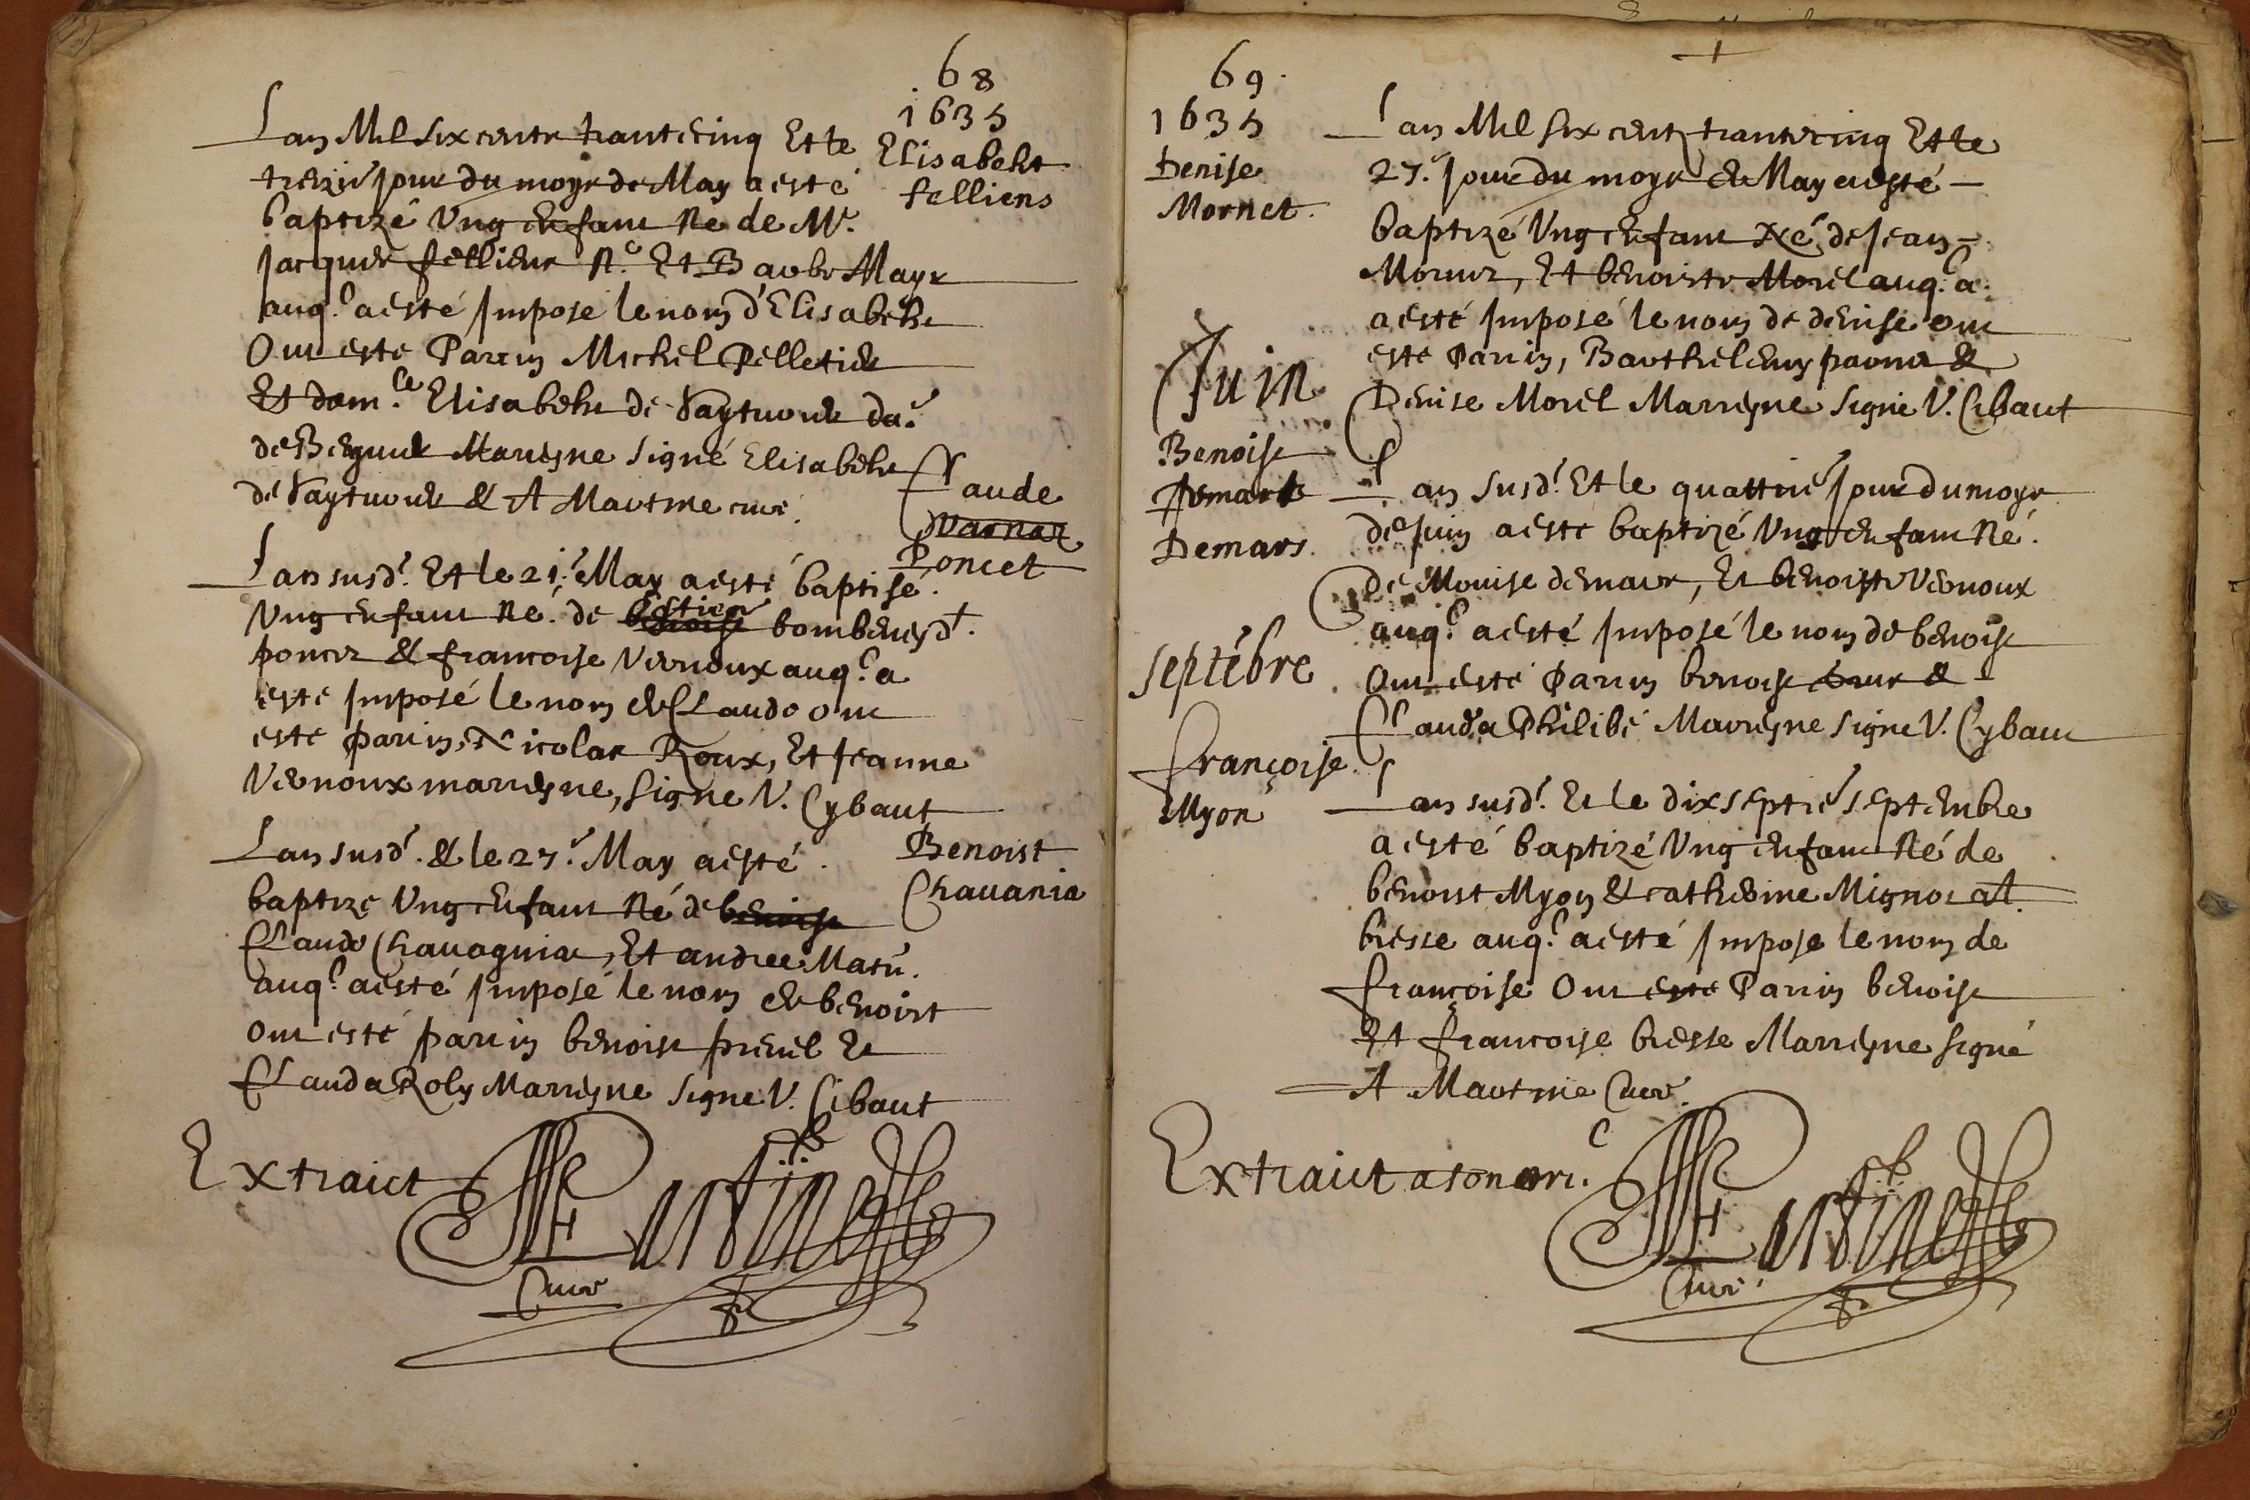 68
1635
Elisabeht
felliens
Lan Mil six cents trante cinq Et le
trezie jour du moys de May a esté
baptizé Ung enfant Né de Mr.
Jacques felliens N.e Et Barbe Mayr
auql a esté Imposé le nom d'Elisabeht
Ont esté Parrin Michel Pelletier
Et dam.le Elisabeht de
de Marreyne Signé Elisabeht
de & A Martine curé
Claude
Varnoz
Poncet
Lan susd. Et le 21e May a esté baptisé
Ung enfant Né de benoist Estien bombeney dt
poncet & francoise Vernoux auql a
esté Imposé le nom de Claude ont
esté parrin, Nicolas Roux, Et Jeanne
Vernoux marreyne, Signe V. Cybaut
Benoist
Chauania
Lan susd. & le 27e May a esté
baptize Ung enfant Né de benoist
Claude Chauagniac, Et andree
auql a esté Imposé le nom de benoist
ont esté parrin benoist preuel Et
Clauda Roly Marreyne Signe V. Cibaut
Extraict
Curé
69.
1635
Denise
Mornet.
Lan Mil six cents trante cinq Et le
27e Jour du moys de May a esté
baptizé Ung enfant Né de Jean
Mornet, Et benoiste Morel auql a
a esté Imposé le nom de denise ont
esté Parrin, Barthelemy &
Denise Morel Marreyne Signe V. Cibaut
Juin
Benoist
Demars
Lan Susd. Et le quattrie Jour du moys
de Juin a esté baptizé Ung enfant Né
de Mouise demars, Et benoiste Vernoux
auql a esté Imposé le nom de benoist
Ont esté Parrin benoist &
Clauda Philibé Marreyne Signe V. Cybaut
septēbre
françoise
Myon
Lan susd. Et le dixseptie septembre
a esté baptizé Ung enfant Né de
benoist Myon & catherine Mignot at
bresse auql a esté Imposé le nom de
françoise Ont esté Parrin benoist
Et francoise bresse Marreyne signé
A Martine Curé
Extraict a son ori.
Curé